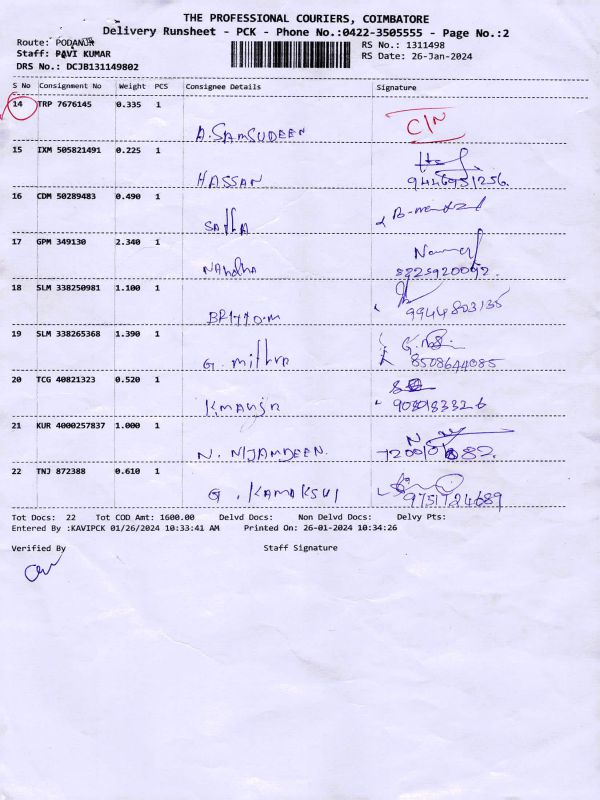 THE PROFESSIONAL COURIERS, COIMBATORE
Delivery Runsheet - PCK - Phone No.:0422-3505555 - Page No.:2
Route: PODANUR
RS No.: 1311498
Staff: PAVI KUMAR
RS Date: 26-Jan-2024
DRS No.: DCJB131149802
S No Consignment No Weight PCS Consignee Details Signature
14 TRP 7676145 0.335 1
A. SAMSUDEEN C/N
15 IXM 505821491 0.225 1
HASSAN 9446951256.
16 CDM 50289483 0.490 1
17 GPM 349130 2.340 1
18 SLM 338250981 1.100 1
BRITTO.M 9944803135
19 SLM 338265368 1.390 1
G. mithra 8508644085
20 TCG 40821323 0.520 1
21 KUR 4000257837 1.000 1
N. NIJAMDEEN.
22 TNJ 872388 0.610 1
G. KAMAKSUI 9751724689
Tot Docs: 22 Tot COD Amt: 1600.00 Delvd Docs: Non Delvd Docs: Delvy Pts:
Entered By :KAVIPCK 01/26/2024 10:33:41 AM Printed On: 26-01-2024 10:34:26
Verified By Staff Signature